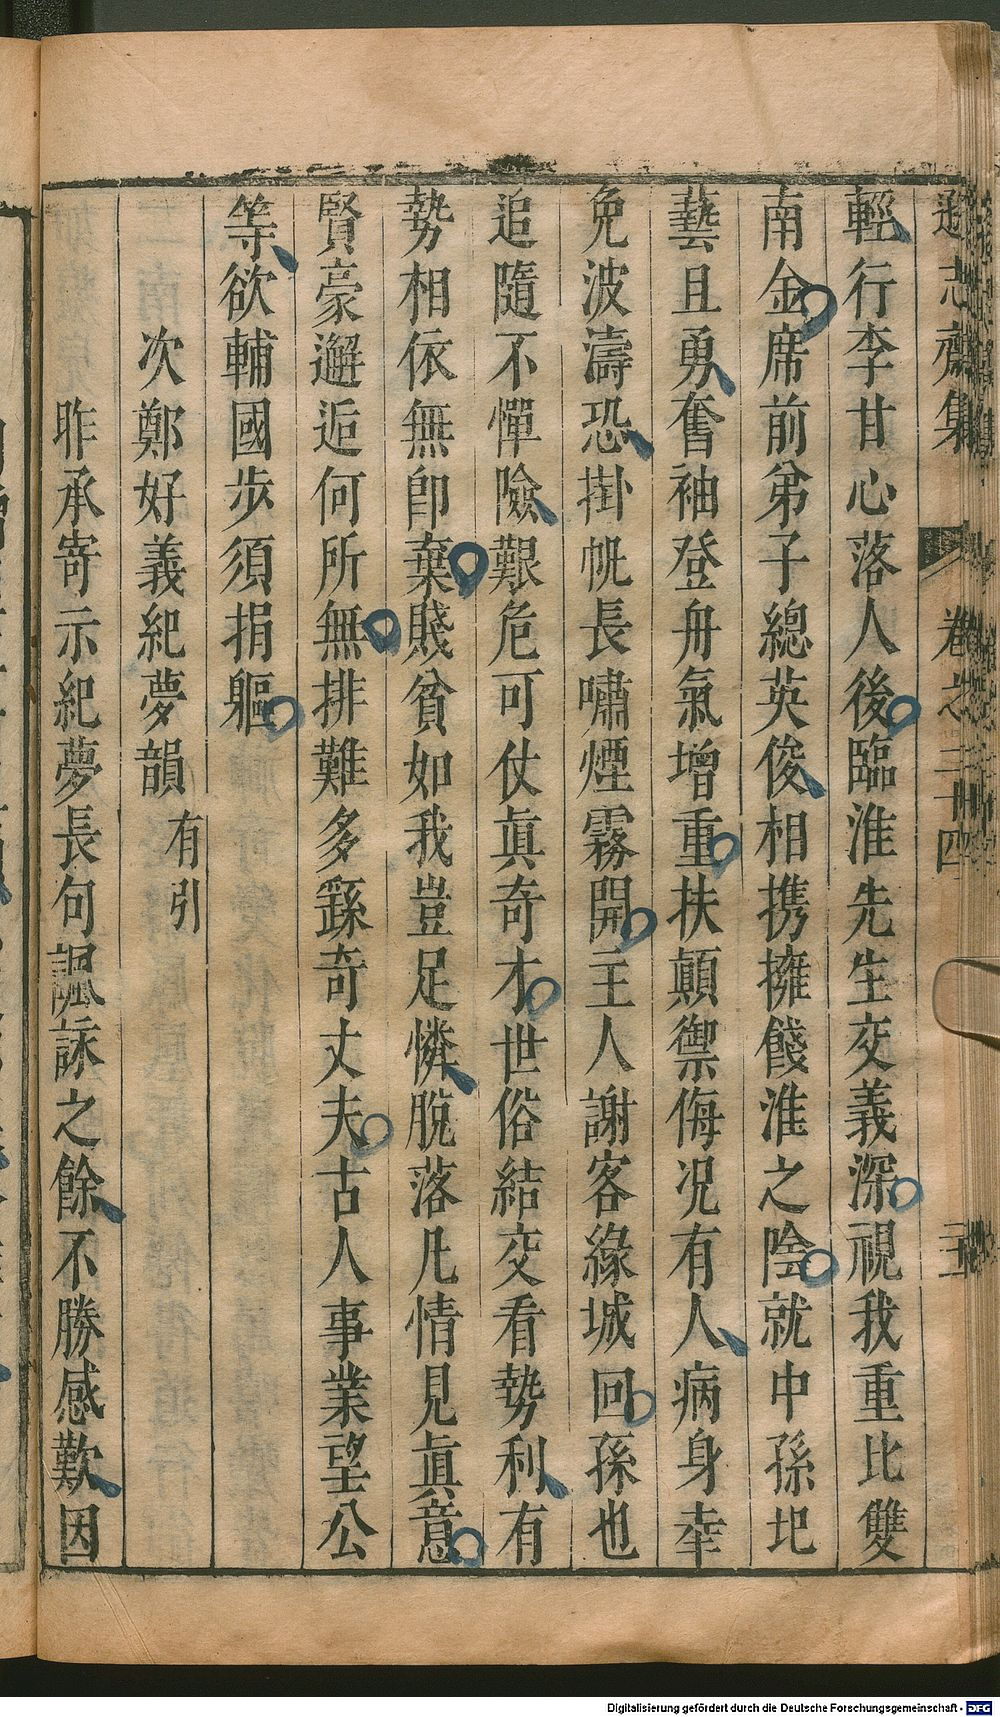 遜志齋集 卷之二十四
輕行李甘心落人後臨淮先生交義深視我重比雙
南金席前弟子總英俊相携擁餞淮之陰就中孫圯
藝且勇奮袖登舟氣增重扶顛禦侮况有人病身幸
免波濤恐掛帆長嘯煙霧開主人謝客緣城回孫也
追隨不憚險艱危可仗眞奇才世俗結交看勢利有
勢相依無卽棄賤貧如我豈足憐脫落凡情見眞意
賢豪邂逅何所無排難多繇奇丈夫古人事業望公
等欲輔國步須捐軀
次鄭好義紀夢韻 有引
昨承寄示紀夢長句諷詠之餘不勝感歎因
Digitalisierung gefördert durch die Deutsche Forschungsgemeinschaft - DFG